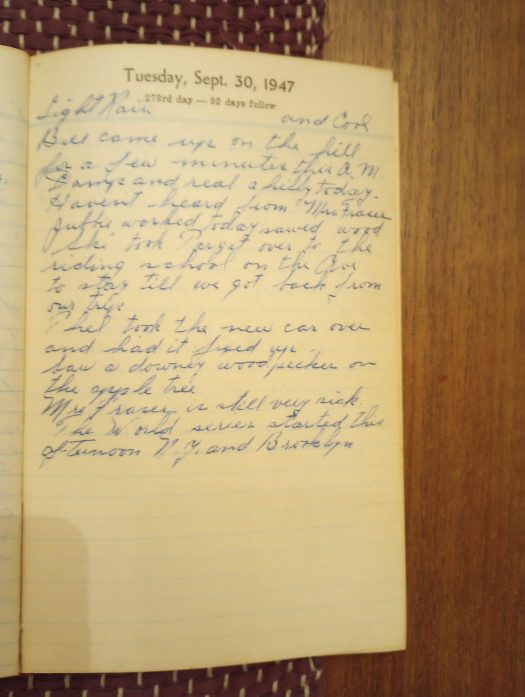 Tuesday, Sept. 30, 1947
273rd day — 92 days follow
Light Rain and Cool
Bill came up on the hill
for a few minutes this A.M.
and real chilly today.
Havent heard from Mrs Fraser
worked today sawed wood
Ski took over to the
riding school on the Ave
to stay till we got back from
our trip
Phel took the new car over
and had it fixed up.
Saw a downey woodpecker on
the apple tree
Mrs Fraser is still very sick.
The World series started this
afternoon N.Y. and Brooklyn